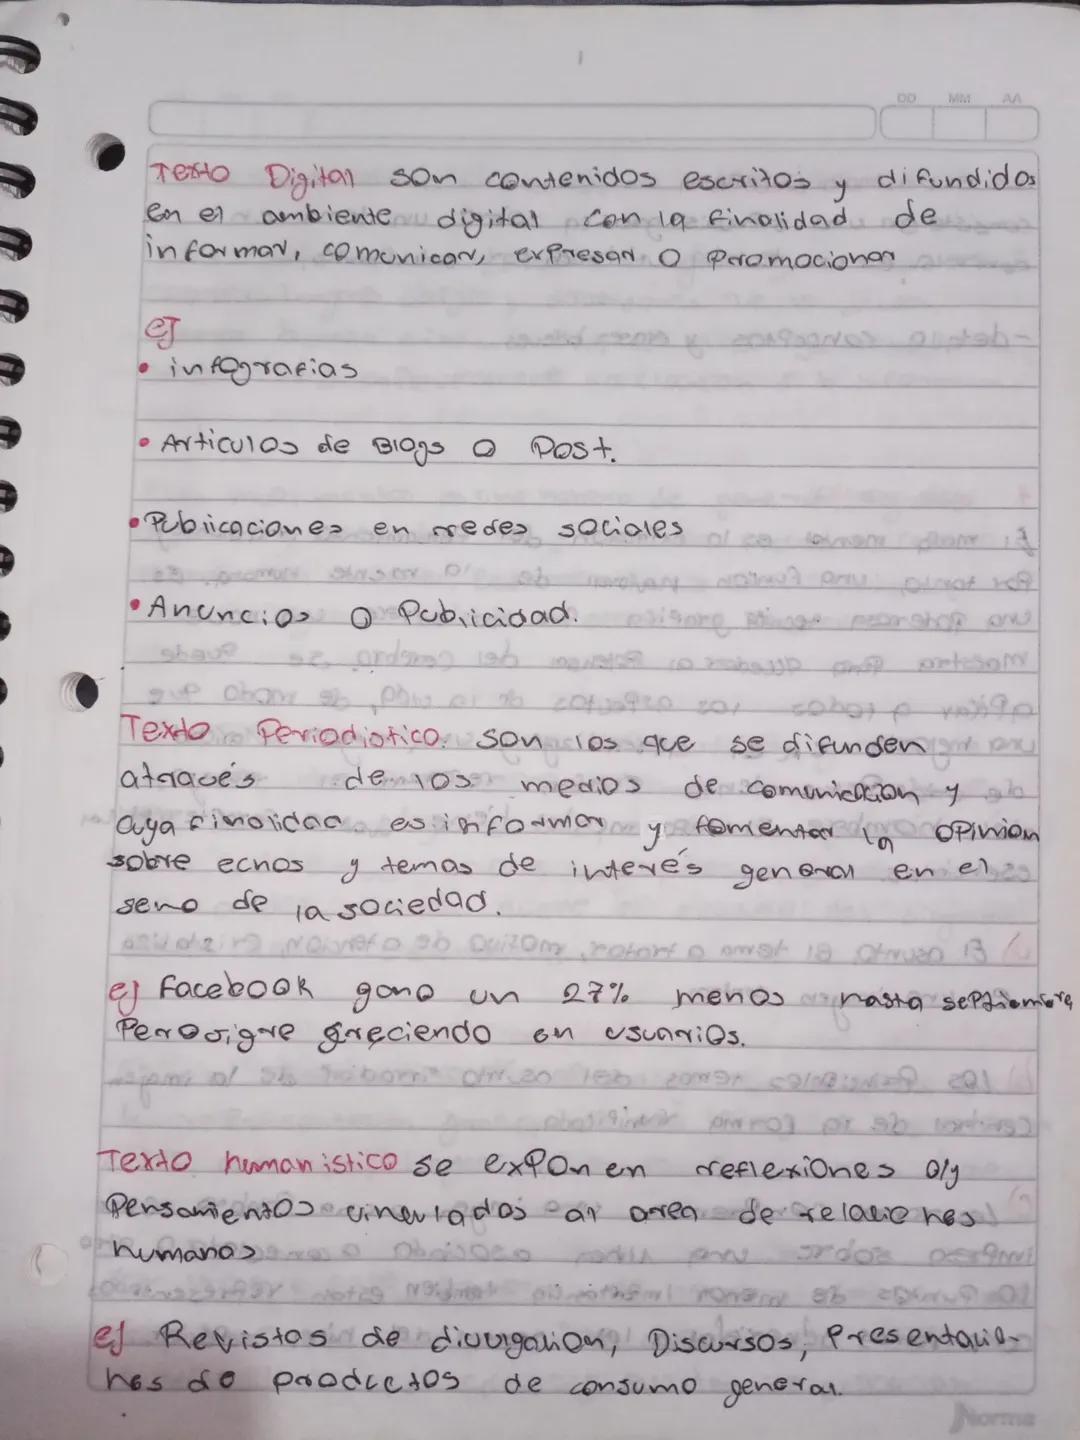 DD MM AA
Texto Digital son contenidos escritos y difundidos
en el ambiente digital con la finalidad de
informar, comunicar, expresar o promocionar
ej
• infografias
• Articulos de Blogs o Post.
• Publicaciones en redes sociales
• Anuncios o Publicidad.
Texto Periodistico. son los que se difunden
através de los medios de comunicacion y
cuya finalidad es informar y fomentar la opinion
sobre echos y temas de interés general en el
seno de la sociedad.
ej Facebook gano un 27% menos hasta septiembre
Pero sigue creciendo en usuarios.
Texto humanistico se exponen reflexiones o/y
Pensamientos vinculados al area de relaciones
humanas
ej Revistas de divulgacion, Discursos, Presentacio-
nes de productos de consumo general.
Norma